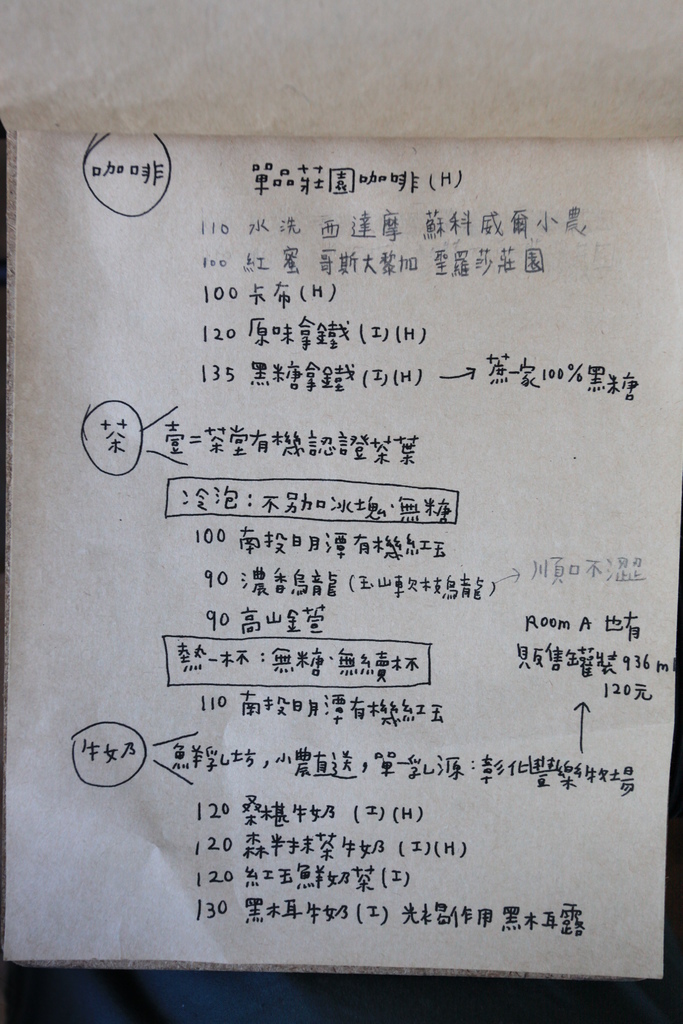 咖啡
單品莊園咖啡(H)
110 水洗 西達摩 蘇科威爾小農
100 紅蜜 哥斯大黎加 聖羅莎莊園
100 卡布(H)
120 原味拿鐵(I)(H)
135 黑糖拿鐵(I)(H) → 蔗一家100%黑糖
茶
壹=茶堂有機認證茶葉
冷泡:不另加冰塊·無糖
100 南投日月潭有機紅玉
90 濃香烏龍(玉山軟枝烏龍) → 順口不澀
90 高山金萱
熱一杯:無糖·無續杯
110 南投日月潭有機紅玉
ROOM A 也有
販售罐裝936ml
120元
牛奶
鮮乳坊,小農直送,單一乳源:彰化豐樂牧場
120 桑椹牛奶 (I)(H)
120 森半抹茶牛奶 (I)(H)
120 紅玉鮮奶茶(I)
130 黑木耳牛奶(I) 光合作用 黑木耳露